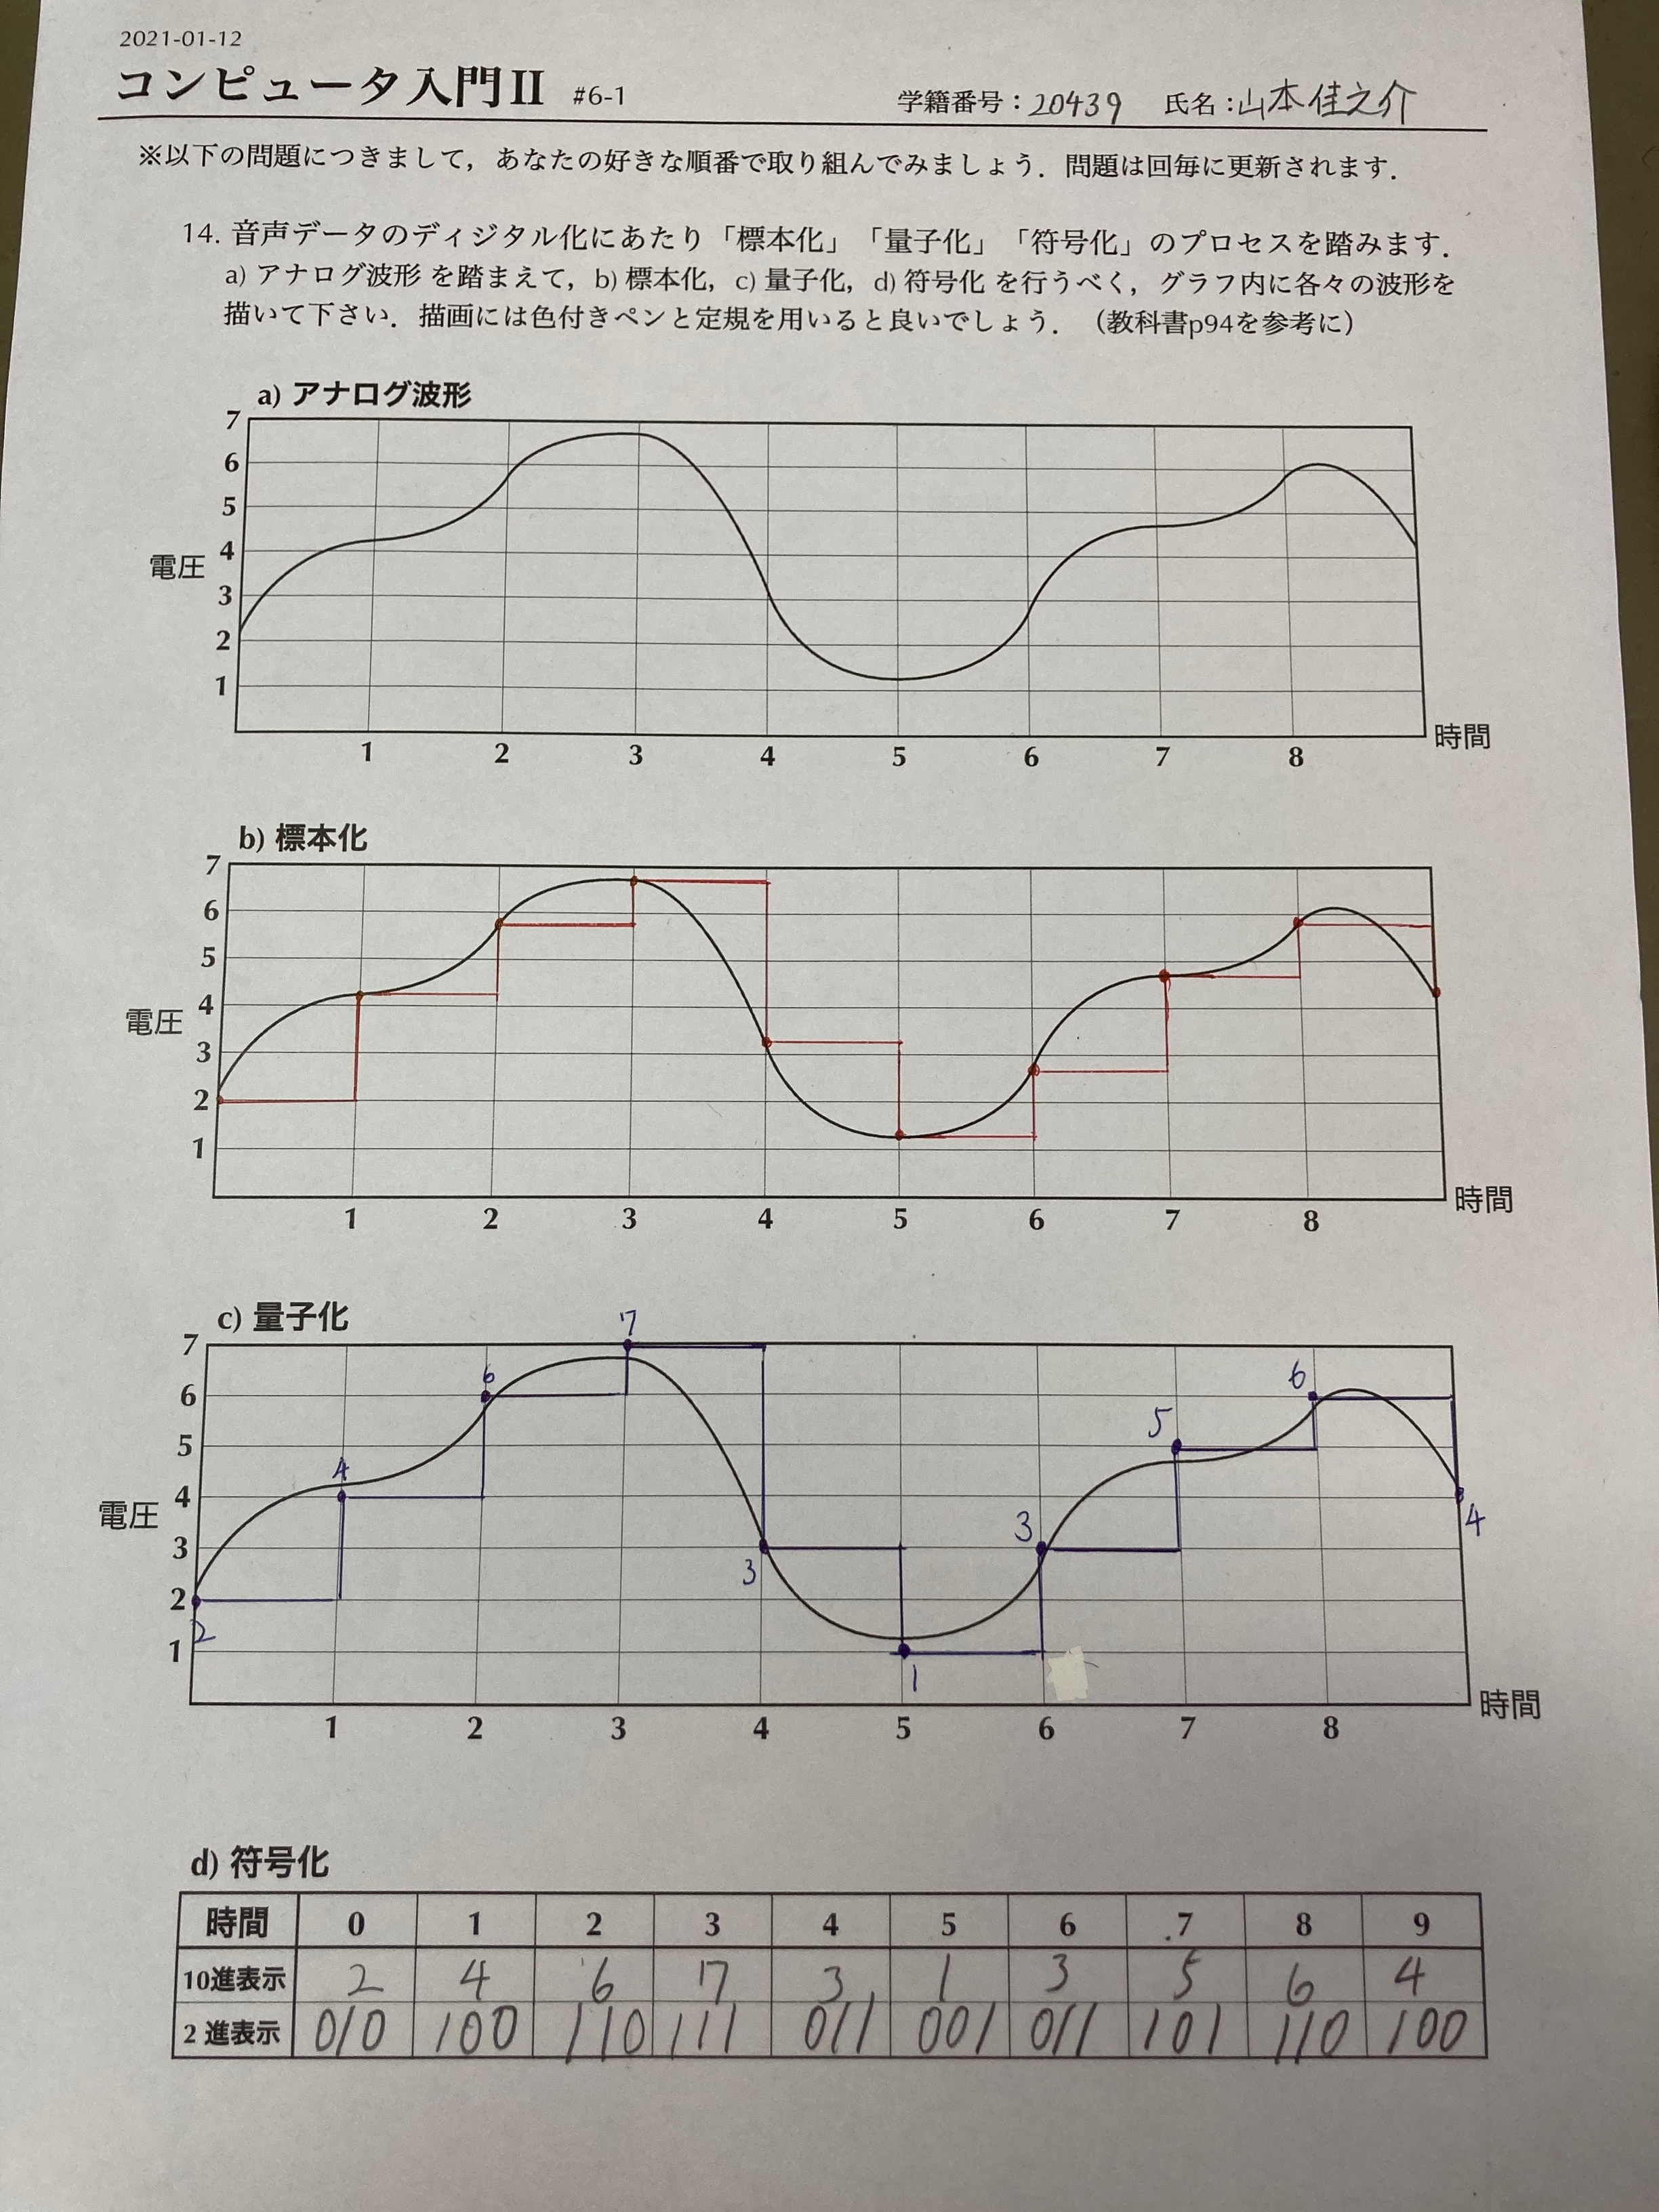 2021-01-12
コンピュータ入門II #6-1 学籍番号：20439 氏名：山本佳之介
※以下の問題につきまして，あなたの好きな順番で取り組んでみましょう．問題は回毎に更新されます．
14. 音声データのディジタル化にあたり「標本化」「量子化」「符号化」のプロセスを踏みます．
a) アナログ波形 を踏まえて，b) 標本化，c) 量子化，d) 符号化 を行うべく，グラフ内に各々の波形を
描いて下さい．描画には色付きペンと定規を用いると良いでしょう．（教科書p94を参考に）
a) アナログ波形
7
6
5
4
電圧
3
2
1
1 2 3 4 5 6 7 8 時間
b) 標本化
7
6
5
4
電圧
3
2
1
1 2 3 4 5 6 7 8 時間
c) 量子化
7
6
5
4
電圧
3
2
1
2 4 6 7 3 1 3 5 6 4
1 2 3 4 5 6 7 8 時間
d) 符号化
時間 0 1 2 3 4 5 6 7 8 9
10進表示 2 4 6 7 3 1 3 5 6 4
2進表示 010 100 110 111 011 001 011 101 110 100